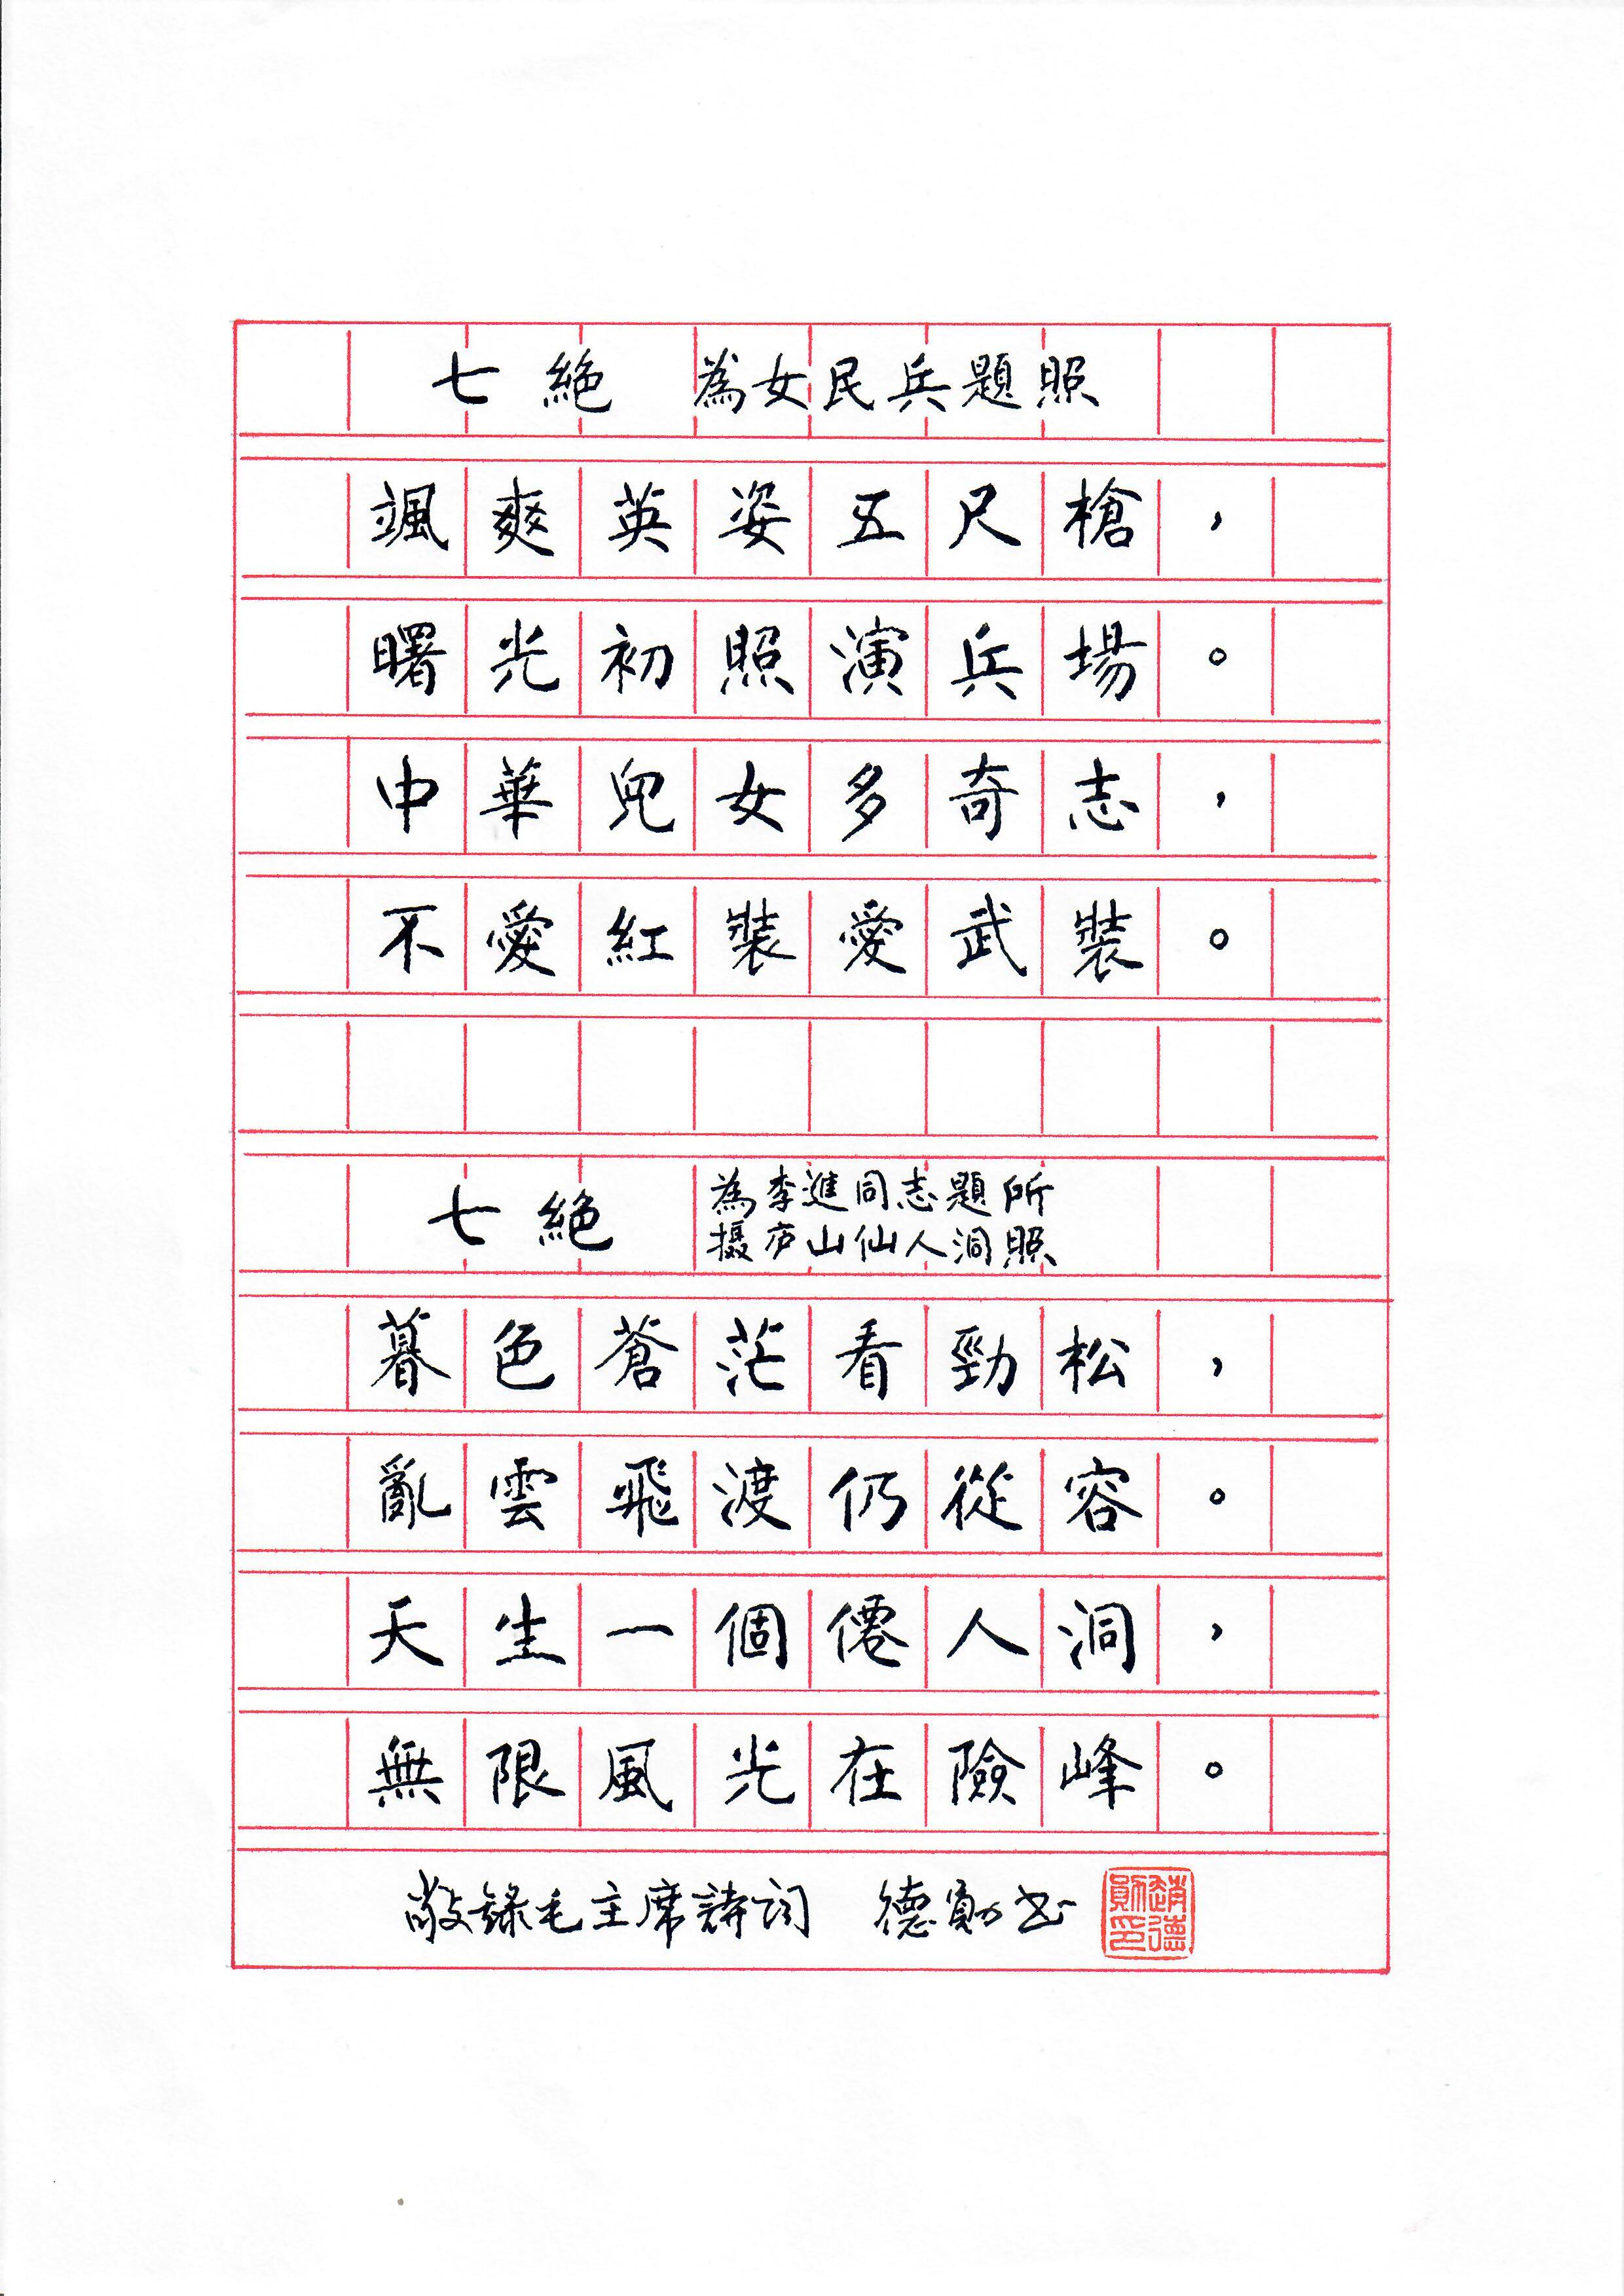 七絕 為女民兵題照
颯爽英姿五尺槍，
曙光初照演兵場。
中華兒女多奇志，
不愛紅裝愛武裝。
七絕
為李進同志題所
摄庐山仙人洞照
暮色蒼茫看勁松，
亂雲飛渡仍從容。
天生一個僊人洞，
無限風光在險峰。
敬錄毛主席詩詞 德勛书
趙德
勛印